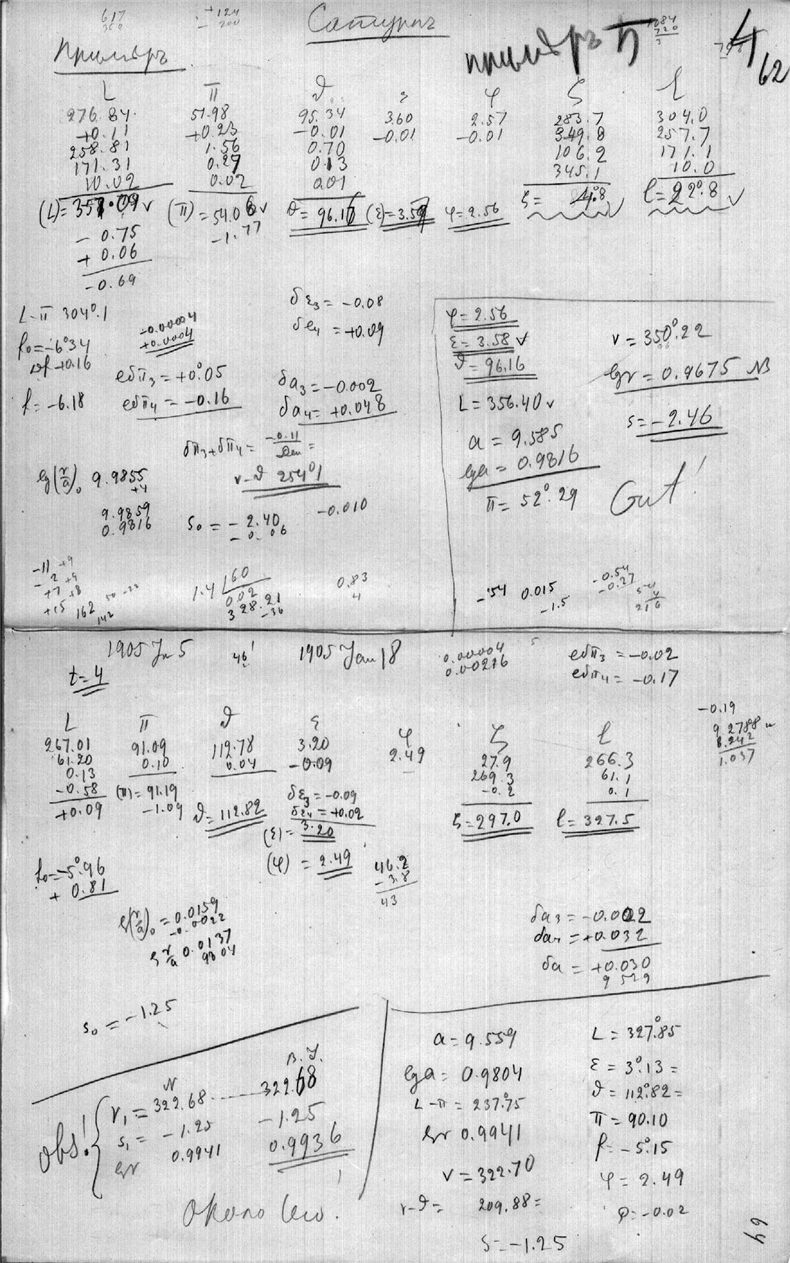 Сатурнъ
Примѣръ
примѣръ 5
62
L π ϑ ε φ ζ l
276.84 51.98 95.34 3.60 2.57 283.7 304.0
+0.11 +0.23 −0.01 −0.01 −0.01 349.8 257.7
258.81 1.56 0.70 106.2 171.1
171.31 0.27 0.13 345.1 10.0
10.02 0.02 0.01
(L)=357.09 v (π)=54.06 v ϑ=96.16 (ε)=3.59 φ=2.56 ζ= 4.8 l=22.8 v
− 0.75 −1.77
+ 0.06
−0.69
L−π 304°.1
f₀=−6°34
+0.16
f=−6.18
−0.00004
+0.0004
eδπ₃=+0°.05
eδπ₄=−0.16
δπ₃+δπ₄= −0.11
v−ϑ 254°1
δε₃=−0.08
δε₄=+0.09
δa₃=−0.002
δa₄=+0.048
lg(r/a)₀ 9.9855
+4
9.9859
0.9816
s₀=−2.40
−0.06
−0.010
φ=2.56
ε=3.58 v
ϑ=96.16
L=356.40 v
a=9.585
lga=0.9816
π=52°.29
v=350°.22
lgr=0.9675 NB
s=−2.46
Gut!
−54 0.015
−1.5
−0.54
−0.27
1.4 60
0.02
328.21
−36
0.83
4
1905 Jan 5 46' 1905 Jan 18
t=4
0.00004
0.00216
eδπ₃=−0.02
eδπ₄=−0.17
−0.19
9.2788
1.037
L π ϑ ε φ ζ l
267.01 91.09 112.78 3.20 2.49 27.9 266.3
61.20 0.10 0.04 −0.09 269.3 61.1
0.13 −0.2 0.1
−0.58 (π)=91.19
+0.09 −1.09 ϑ=112.82 ζ=297.0 l=327.5
δε₃=−0.09
δε₄=+0.02
(ε)=3.20
(φ)=2.49
46.2
−3.8
43
f₀=−5°.96
+0.81
lg(r/a)₀=0.0159
−0.0022
lg r/a 0.0137
9804
δa₃=−0.002
δa₄=+0.032
δa=+0.030
9 529
s₀=−1.25
N B.J.
obs!
v₁=322.68 ........ 322.68
s₁=−1.25 −1.25
lgr 0.9941 0.9936
около Leo.
a=9.559
lga=0.9804
L−π=237°.75
lgr 0.9941
v=322.70
v−ϑ= 209.88=
s=−1.25
L=327°.85
ε=3°.13=
ϑ=112°.82=
π=90.10
f=−5°.15
φ=2.49
ρ=−0.02